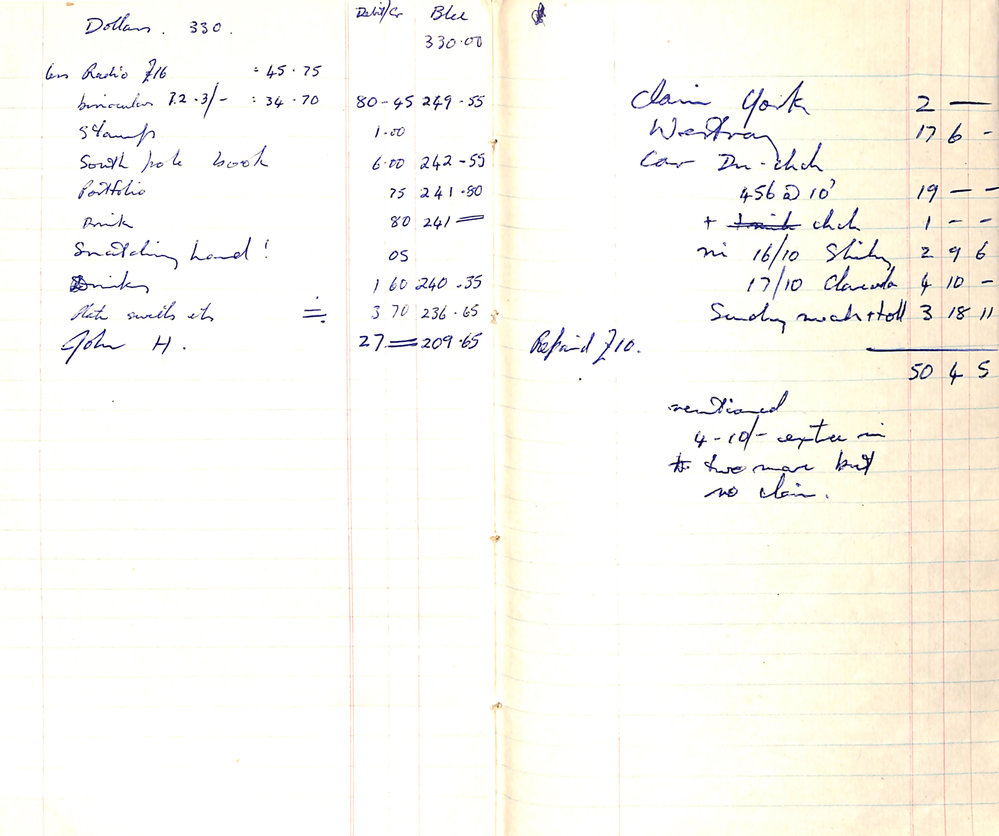 Dollars. 330. Debit/Cr Blce
330.00
less Radio £16 : 45.75
binocular 12.3/- : 34.70 80-45 249-55
Stamps 1.00
South pole book 6.00 242-55
Portfolio 75 241.80
Drink 80 241 =
Snatching hand! 05
Drinks 1 60 240.35
sweets etc 3 70 236.65
John H. 27 = 209.65
Claim York 2 —
17 6 -
Car Dn-chch
456 @ 10' 19 — —
+ chch 1 - -
in 16/10 2 9 6
17/10 4 10 -
Sunday 3 18 11
Repaid £10.
50 4 5
mentioned
4-10/- extra in
two more but
no claim.